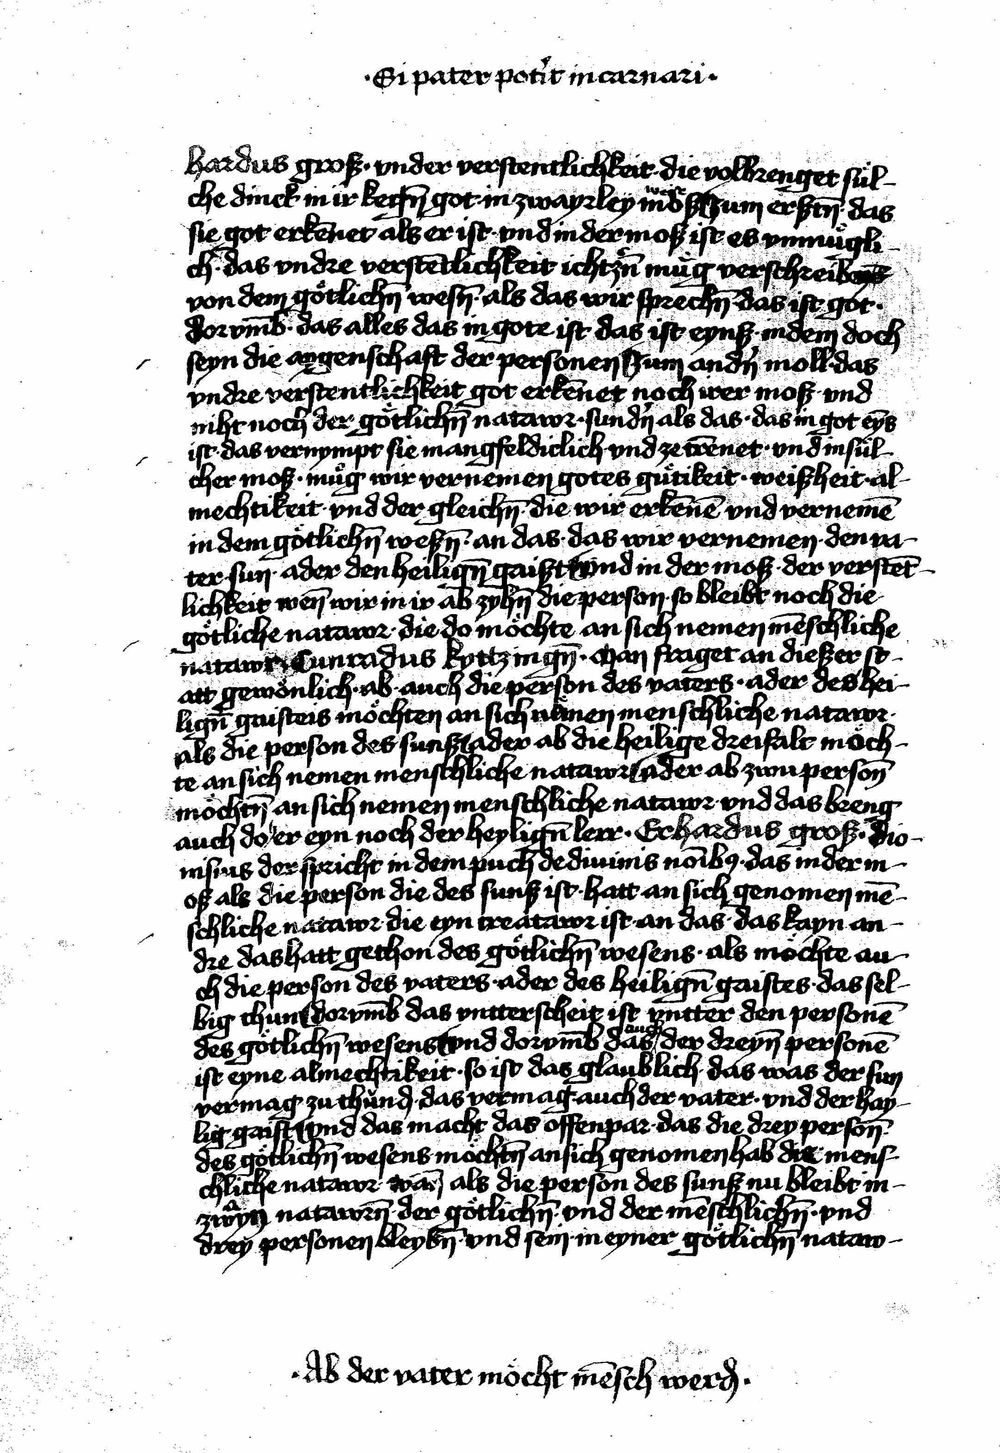 ·Si pater potʼit incarnari·
hardus groß· vnder verstentlichkeit· die volbrenget sül-
che dinck in ir kegn̄ got in zwayrley weße zum erßtn̄· das
sie got erkēnet als er ist· vnd in der moß ist es vnmüͤgli-
ch· das vndre verstētlichkeit ichtzn̄ müͤg verschreiben
von dem göͤtlichn̄ wesn̄· als das wir sprechn̄ das ist got·
dorvm̄b· das alles das in gote ist das ist eynß· in dem doch
seyn die aygenschaft der personen Zum andn̄ moll· das
vndre verstentlichkeit got erkēnet noch irer moß· vnd
niht noch der göͤtlichn̄ natawr· sundn̄ als das· das in got eȳs
ist· das vernympt sie mangfeldiclich vnd zetrēnet· vnd in süͤl-
cher moß· müͤg wir vernemen gotes güͤtikeit· weißheit· al-
mechtikeit· vnd der gleichn̄· die wir erkēnē vnd vernemē
in dem göͤtlichn̄ weßn̄· an das· das wir vernemen· den va-
ter· sun· ader den heilign̄ gaist vnd in der moß· der verstēt-
lichkeit wen̄ wir in ir ab zyhn̄ die person· so bleibt noch die
göͤtliche natawr· die do möͤchte an sich nemen mēschliche
natawr· Cunradus kyttzingn̄· Man fraget an dießer st-
att gewöͤnlich· ab· auch die person des vaters· ader des hei-
lign̄ gaisteis möͤchten an sich nemen menschliche natawr·
als die person des sunß ader ab die heilige dreifalt möͤch-
te an sich nemen menschliche natawr ader ab zwu person̄
möͤchtn̄ an sich nemen menschliche natawr· vnd das breng
auch do er eyn noch der heylign̄ lerr· Erhardus groß· dio-
nisius der spricht in dem puch de diuinis noīb9· das in der m-
oß als die person die des sunß ist· hatt an sich genomen mē-
schliche natawr· die eyn creatawr ist· an das· das kayn an-
dre das hatt gethon des göͤtlichn̄ wesens· als möͤchte au-
ch die person des vaters· ader des heilign̄ gaistes· das sel-
big thun dorvm̄b das vntterscheit ist vntter den personē
des göͤtlichn̄ wesens vnd dorvm̄b das auch der dreyn̄ personē
ist eyne almechtikeit· so ist das glaublich das was der sun
vermag zu thuͤnd· das vermag auch der vater· vnd der hay-
lig gaist vnd das macht das offenpar· das die drey person̄
des göͤtlichn̄ wesens möͤchtn̄ an sich genomen hab die mens-
chliche natawr· wan̄ als die person des sunß nu bleibt in-
zwayn natawrn̄· der göͤtlichn̄· vnd der mēschlichn̄· vnd
drey personen bleybn̄· vnd sein in eyner göͤtlichn̄ nataw-
·Ab der vater möͤcht mēsch werd·